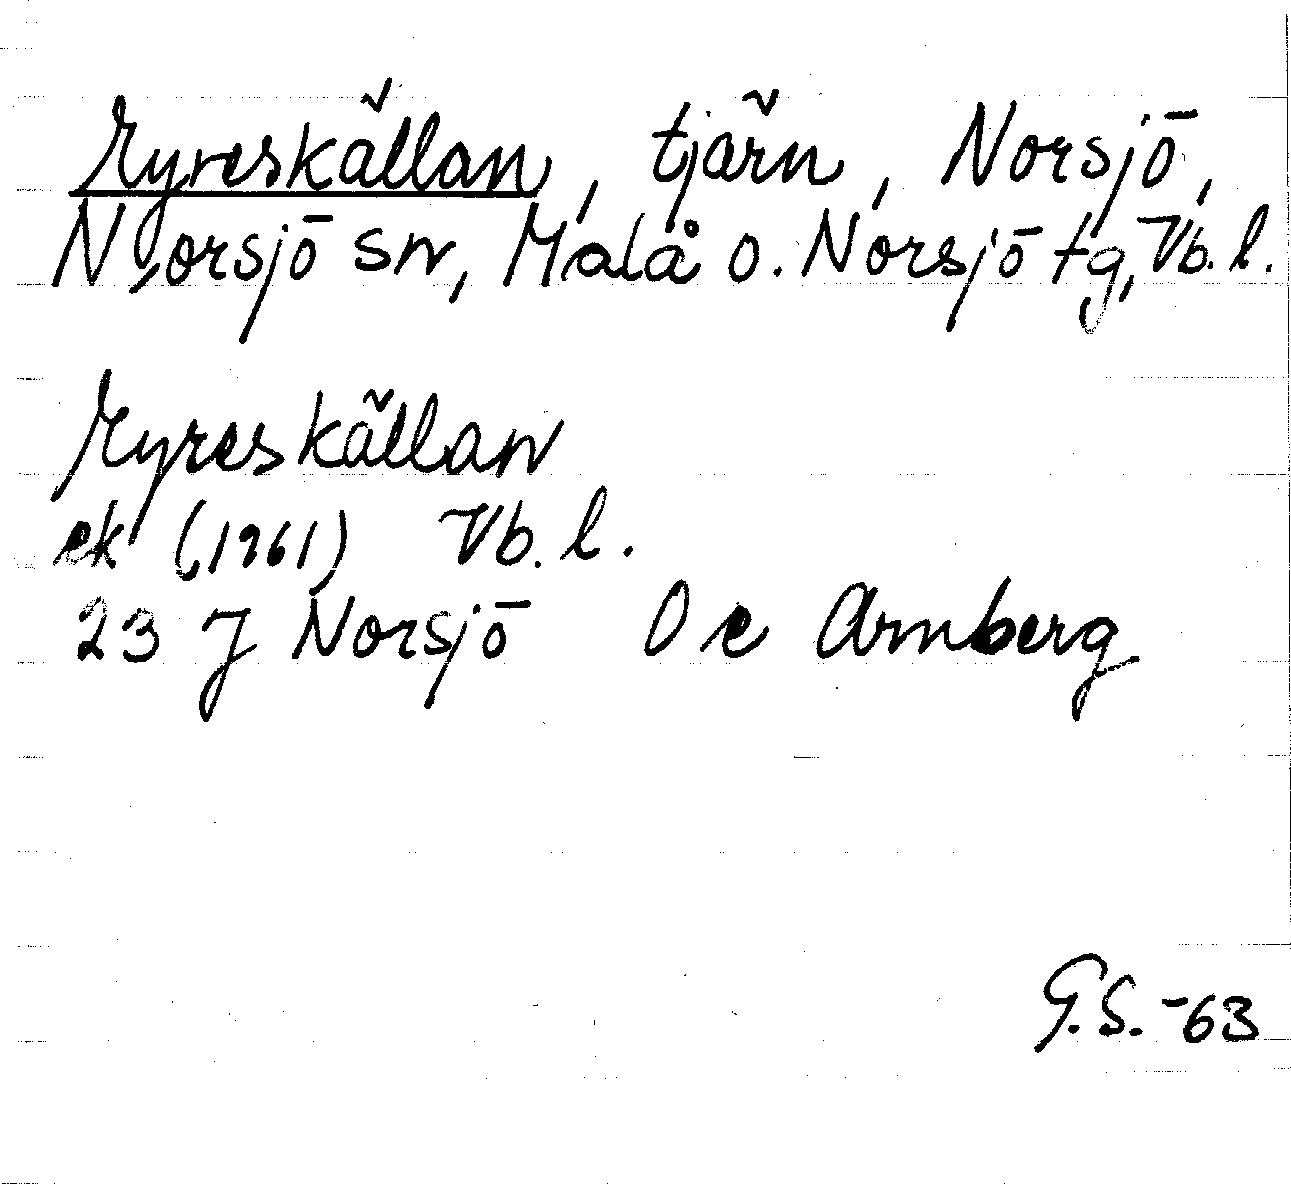 Myreskällan, tjärn, Norsjö,
Norsjö sn, Malå o. Norsjö tg, Vb. l.
Myreskällan
ek (1961) Vb. l.
23 J Norsjö O e Arnberg
G.S. -63